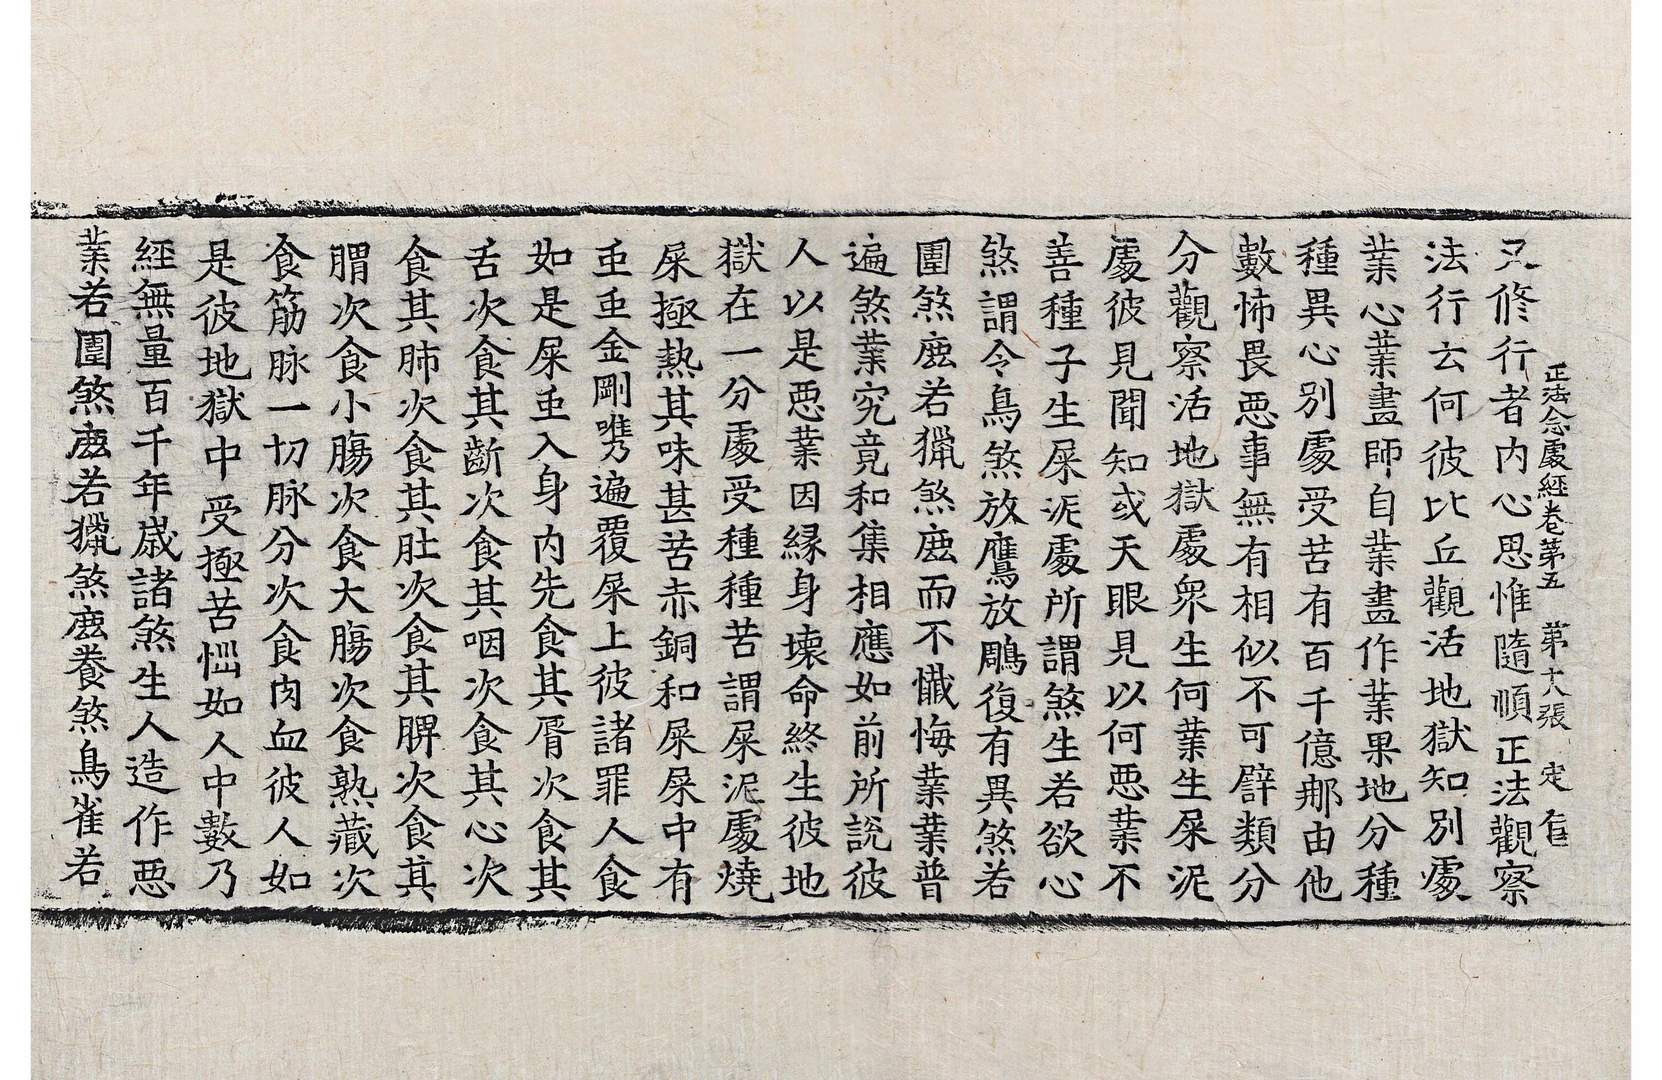 正法念處經卷第五　第十八張　定
又修行者內心思惟隨順正法觀察
法行云何彼比丘觀活地獄知別處
業心業畫師自業畫作業果地分種
種異心別處受苦有百千億那由他
數怖畏惡事無有相似不可譬類分
分觀察活地獄處衆生何業生屎泥
處彼見聞知或天眼見以何惡業不
善種子生屎泥處所謂煞生若欲心
煞謂令鳥煞放鷹放鵰復有異煞若
圍煞鹿若獵煞鹿而不懺悔業業普
遍煞業究竟和集相應如前所說彼
人以是惡業因緣身壞命終生彼地
獄在一分處受種種苦謂屎泥處燒
屎極熱其味甚苦赤銅和屎屎中有
虫虫金剛㗜遍覆屎上彼諸罪人食
如是屎虫入身內先食其脣次食其
舌次食其齗次食其咽次食其心次
食其肺次食其肚次食其脾次食其
胃次食小膓次食大膓次食熟藏次
食筋脉一切脉分次食肉血彼人如
是彼地獄中受極苦惱如人中數乃
經無量百千年歲諸煞生人造作惡
業若圍煞鹿若獵煞鹿養煞鳥雀若